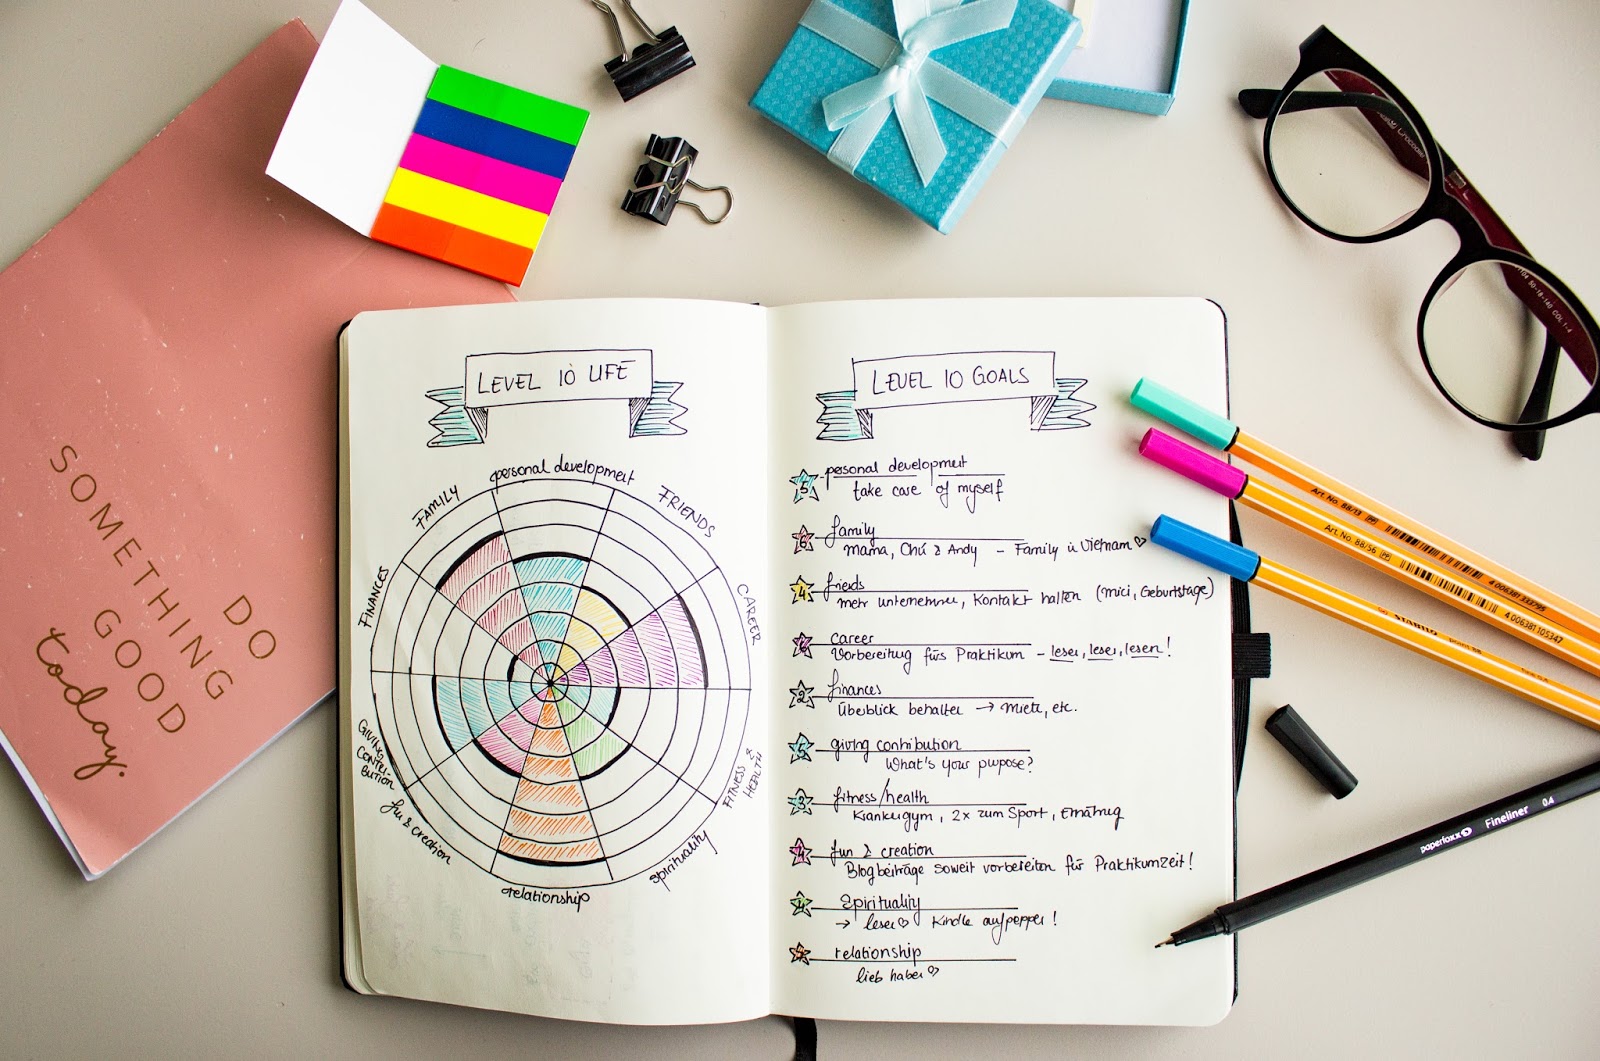 DO
SOMETHING
GOOD
today.
LEVEL 10 LIFE
personal development
FRIENDS
CAREER
FITNESS & HEALTH
spirituality
relationship
fun & creation
GIVING CONTRIBUTION
FINANCES
FAMILY
LEVEL 10 GOALS
5 personal development
take care of myself
6 family
mama, Chú & Andy – Family in Vietnam ♡
4 friends
mehr unternehmen, Kontakt halten (mici, Geburtstage)
career
Vorbereitung fürs Praktikum – lesen, lesen, lesen!
2 finances
Überblick behalten → Miete, etc.
giving contribution
What's your purpose?
3 fitness/health
Krankengym, 2x zum Sport, Ernährung
4 fun & creation
Blogbeiträge soweit vorbereiten für Praktikumzeit!
4 Spirituality
→ lesen ♡ Kindle aufpeppen!
relationship
lieb haben ♡
50-18-140 COL 1-4
Art. No. 88/13
4 006381 333795
Art. No. 88/56
4 006381 105347
STABILO point 88
paperloxx Fineliner 0.4